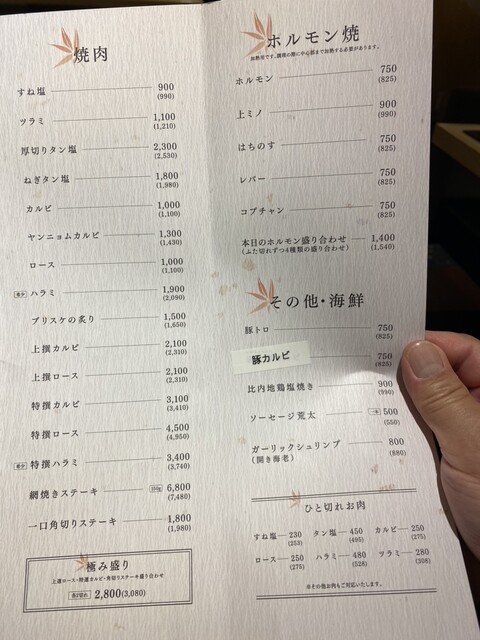 焼肉
すね塩 900
(990)
ツラミ 1,100
(1,210)
厚切りタン塩 2,300
(2,530)
ねぎタン塩 1,800
(1,980)
カルビ 1,000
(1,100)
ヤンニョムカルビ 1,300
(1,430)
ロース 1,000
(1,100)
希少 ハラミ 1,900
(2,090)
ブリスケの炙り 1,500
(1,650)
上撰カルビ 2,100
(2,310)
上撰ロース 2,100
(2,310)
特撰カルビ 3,100
(3,410)
特撰ロース 4,500
(4,950)
希少 特撰ハラミ 3,400
(3,740)
網焼きステーキ 150g 6,800
(7,480)
一口角切りステーキ 1,800
(1,980)
極み盛り
上撰ロース・特撰カルビ・角切りステーキ盛り合わせ
2,800(3,080)
ホルモン焼
加熱用です。調理の際に中心部まで加熱する必要があります。
ホルモン 750
(825)
上ミノ 900
(990)
はちのす 750
(825)
レバー 750
(825)
コプチャン 750
(825)
本日のホルモン盛り合わせ 1,400
(ふた切れずつ4種類の盛り合わせ) (1,540)
その他・海鮮
豚トロ 750
(825)
豚カルビ 750
(825)
比内地鶏塩焼き 900
(990)
ソーセージ荒太 一本 500
(550)
ガーリックシュリンプ 800
(開き海老) (880)
ひと切れお肉
すね塩 230 タン塩 450 カルビ 250
(253) (495) (275)
ロース 250 ハラミ 480 ツラミ 280
(275) (528) (308)
※その他お肉もご対応いたします。